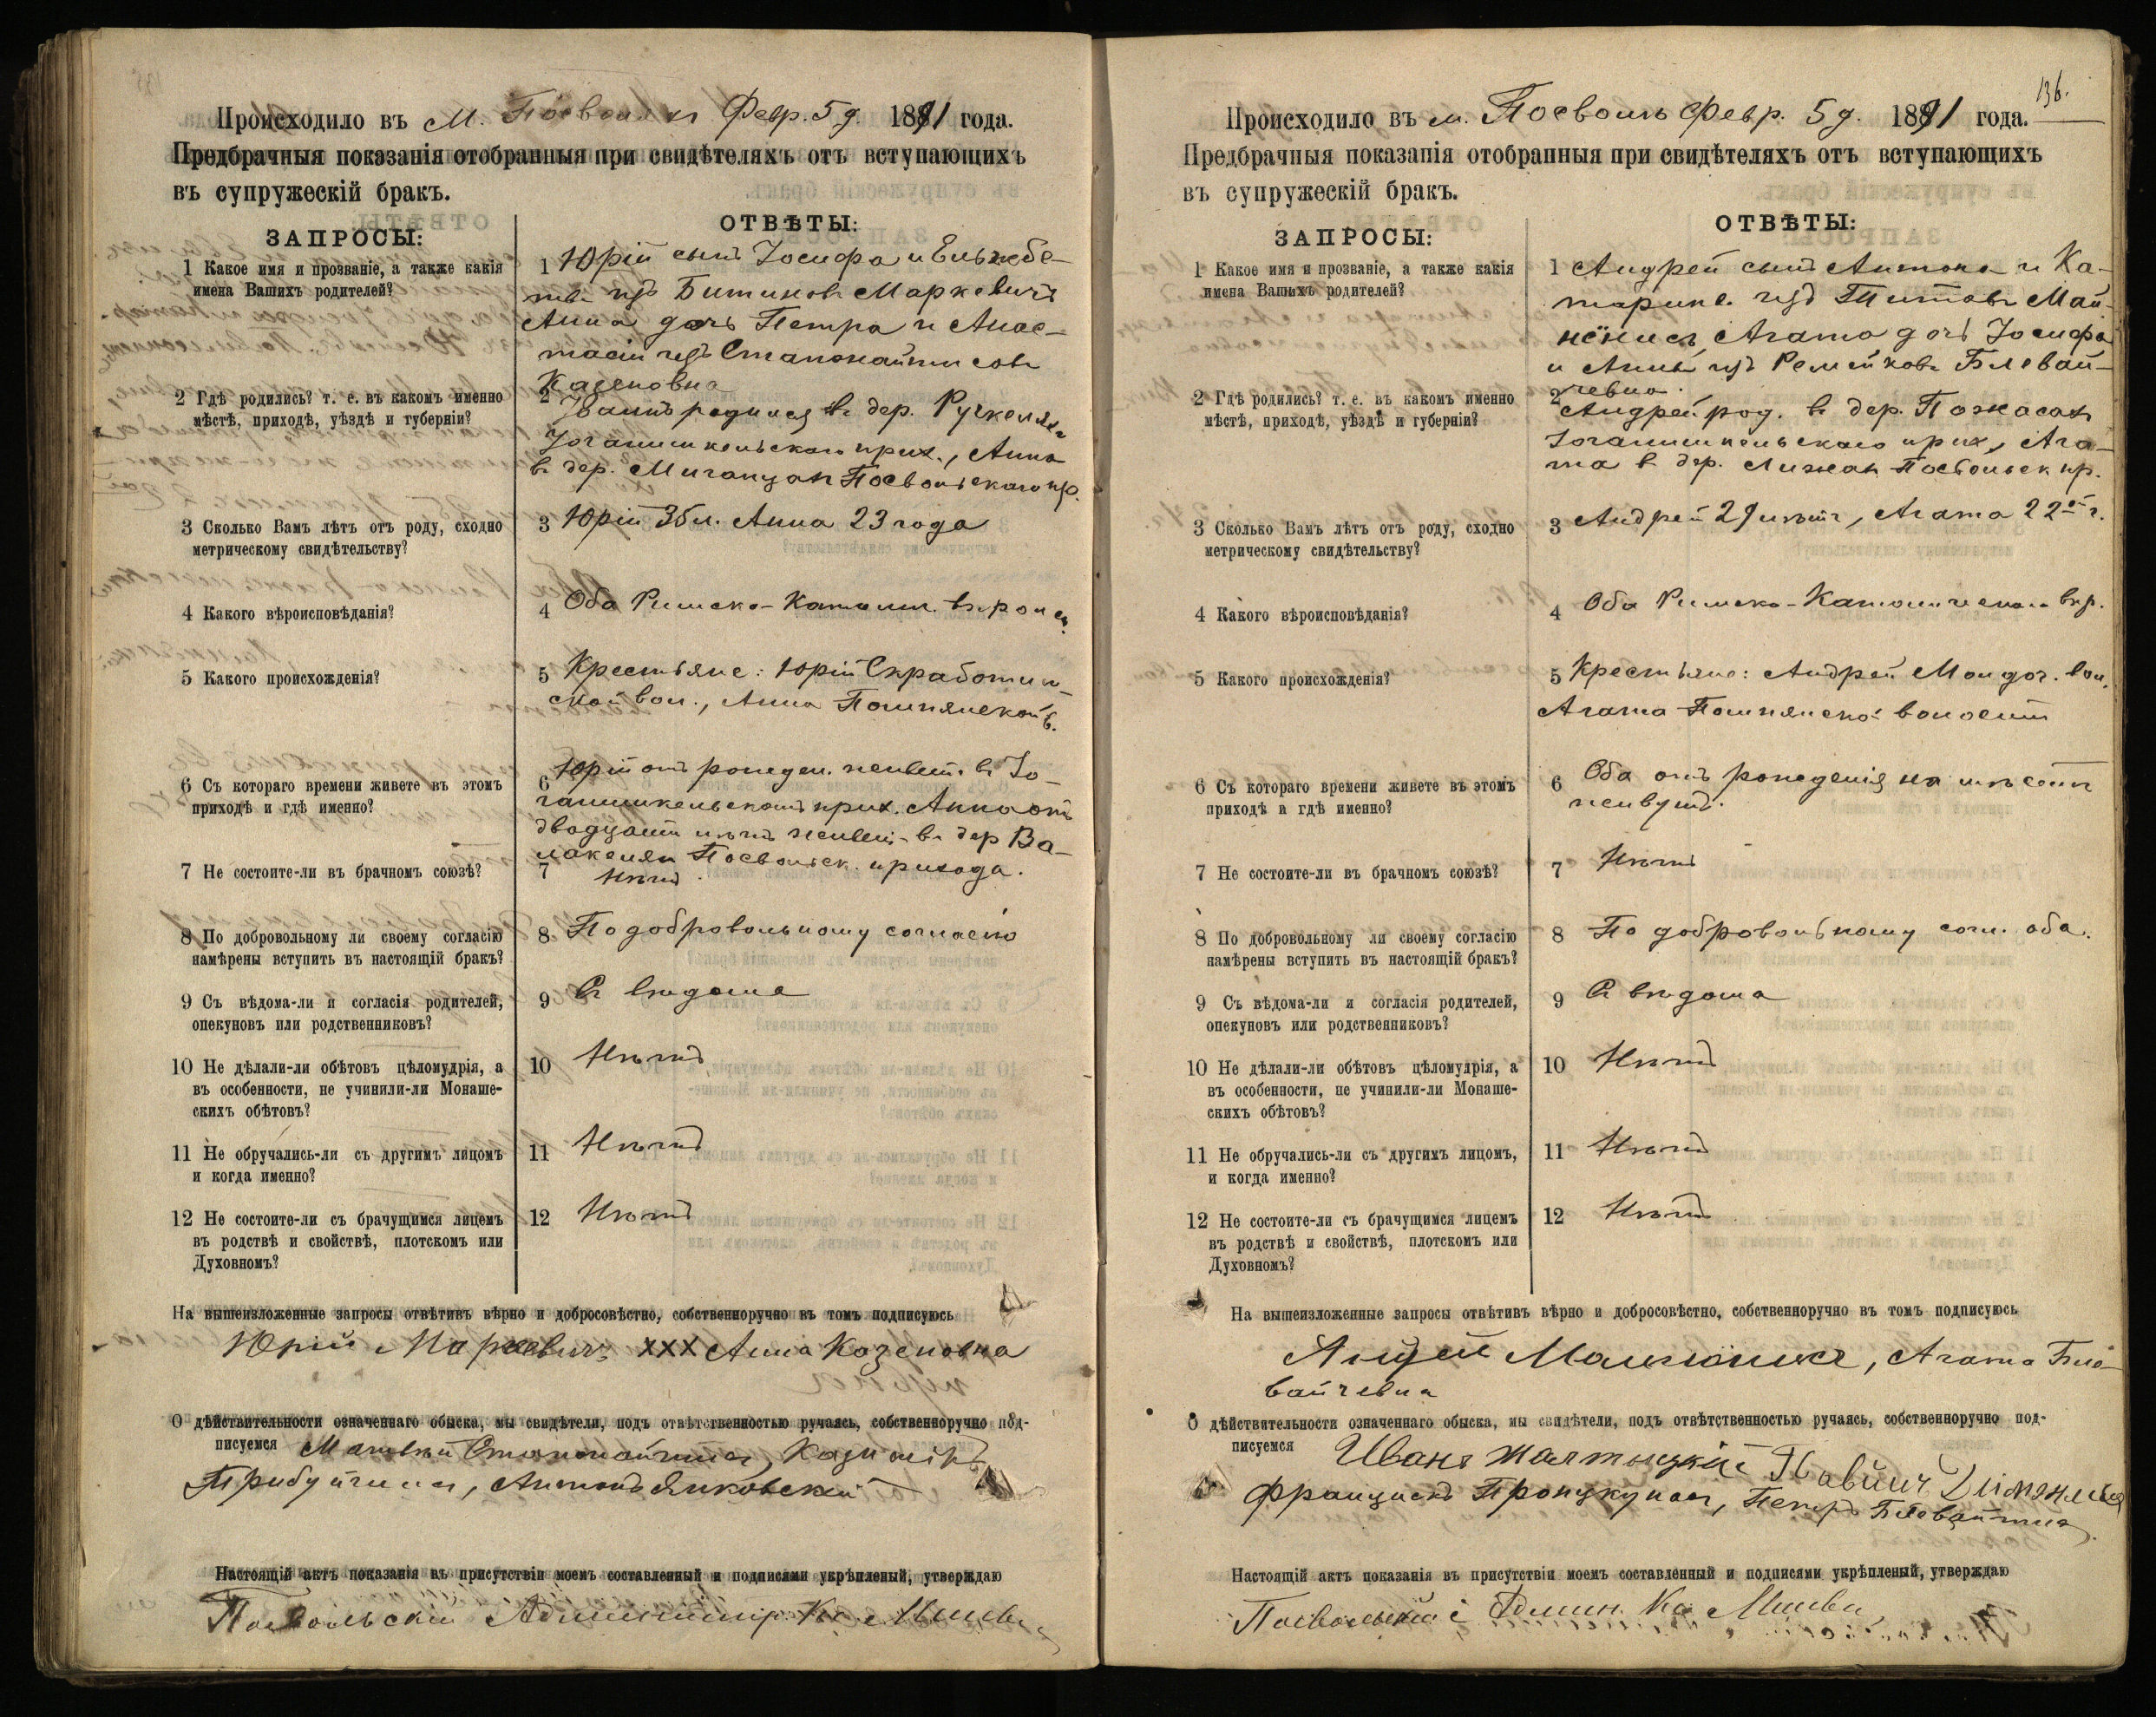 Происходило въ м. Посволи Февр. 5 д. 1891 года.
Предбрачныя показанія отобранныя при свидѣтеляхъ отъ вступающихъ
въ супружескій бракъ.
ЗАПРОСЫ:
ОТВѢТЫ:
1 Какое имя и прозваніе, а также какія
имена Вашихъ родителей?
1 Юрій сынъ Іосифа и Ельжбе-
ты изъ Битиновъ Маркевичъ
Анна дочь Петра и Анас-
тасіи изъ Станонайтисовъ
Казеновна
2 Гдѣ родились? т. е. въ какомъ именно
мѣстѣ, приходѣ, уѣздѣ и губерніи?
2 родился въ дер.
Іоганишкельскаго прих., Анна
въ дер. Посвольскаго пр.
3 Сколько Вамъ лѣтъ отъ роду, сходно
метрическому свидѣтельству?
3 Юрій л. Анна 23 года
4 Какого вѣроисповѣданія?
4 Оба Римско-Католич.
5 Какого происхожденія?
5 Крестьяне: Юрій Скработишк-
ской вол., Анна Помпянской в.
6 Съ котораго времени живете въ этомъ
приходѣ и гдѣ именно?
6 Юрій отъ рожден. живетъ въ Іо-
ганишкельскомъ прих. Анна отъ
двадцати лѣтъ живетъ въ дер Ва-
лакеляхъ Посвольск. прихода.
7 Не состоите-ли въ брачномъ союзѣ?
7 Нѣтъ
8 По добровольному ли своему согласію
намѣрены вступить въ настоящій бракъ?
8 По добровольному согласію
9 Съ вѣдома-ли и согласія родителей,
опекуновъ или родственниковъ?
9 Съ вѣдома
10 Не дѣлали-ли обѣтовъ цѣломудрія, а
въ особенности, не учинили-ли Монаше-
скихъ обѣтовъ?
10 Нѣтъ
11 Не обручались-ли съ другимъ лицомъ
и когда именно?
11 Нѣтъ
12 Не состоите-ли съ брачущимся лицемъ
въ родствѣ и свойствѣ, плотскомъ или
Духовномъ?
12 Нѣтъ
На вышеизложенные запросы отвѣтивъ вѣрно и добросовѣстно, собственноручно въ томъ подписуюсь
Юрій Маркевичъ XXX Анна Козеновна
О дѣйствительности означеннаго обыска, мы свидѣтели, подъ отвѣтственностью ручаясь, собственноручно под-
писуемся Матвѣй Станонайтисъ, Казимиръ
Антонъ Янковский
Настоящій актъ показанія въ присутствіи моемъ составленный и подписями укрѣпленый, утверждаю
Посвольскій Администр. Кс.
136.
Происходило въ м. Посволь Февр. 5 д. 1891 года.
Предбрачныя показанія отобранныя при свидѣтеляхъ отъ вступающихъ
въ супружескій бракъ.
ЗАПРОСЫ:
ОТВѢТЫ:
1 Какое имя и прозваніе, а также какія
имена Вашихъ родителей?
1 Андрей сынъ Антона и Ка-
тарины изъ Титовъ Май-
Агата дочь Іосифа
и Анны изъ Ремейковъ Блевай-
чевна.
2 Гдѣ родились? т. е. въ какомъ именно
мѣстѣ, приходѣ, уѣздѣ и губерніи?
2 Андрей род. въ дер.
Іоганишкельскаго прих., Ага-
та въ дер. Посвольск пр.
3 Сколько Вамъ лѣтъ отъ роду, сходно
метрическому свидѣтельству?
3 Андрей 29 лѣтъ, Агата 22 г.
4 Какого вѣроисповѣданія?
4 Оба Римско-Католическаго вѣр.
5 Какого происхожденія?
5 Крестьяне: Андрей вол.
Агата Помпянской волости
6 Съ котораго времени живете въ этомъ
приходѣ а гдѣ именно?
6 Оба отъ рожденія на мѣстѣ
живутъ.
7 Не состоите-ли въ брачномъ союзѣ?
7 Нѣтъ
8 По добровольному ли своему согласію
намѣрены вступить въ настоящій бракъ?
8 По добровольному согл. оба.
9 Съ вѣдома-ли и согласія родителей,
опекуновъ или родственниковъ?
9 Съ вѣдома
10 Не дѣлали-ли обѣтовъ цѣломудрія, а
въ особенности, не учинили-ли Монаше-
скихъ обѣтовъ?
10 Нѣтъ
11 Не обручались-ли съ другихъ лицомъ,
и когда именно?
11 Нѣтъ
12 Не состоите-ли съ брачущимся лицемъ
въ родствѣ и свойствѣ, плотскомъ или
Духовномъ?
12 Нѣтъ
На вышеизложенные запросы отвѣтивъ вѣрно и добросовѣстно, собственноручно въ томъ подписуюсь
Андрей Агата Бле-
вайчевна
О дѣйствительности означеннаго обыска, мы свидѣтели, подъ отвѣтственностью ручаясь, собственноручно под-
писуемся Иванъ
Францискъ Петръ Блевайтисъ.
Настоящій актъ показанія въ присутствіи моемъ составленный и подписями укрѣпленый, утверждаю
Посвольскій Админ. Кс.